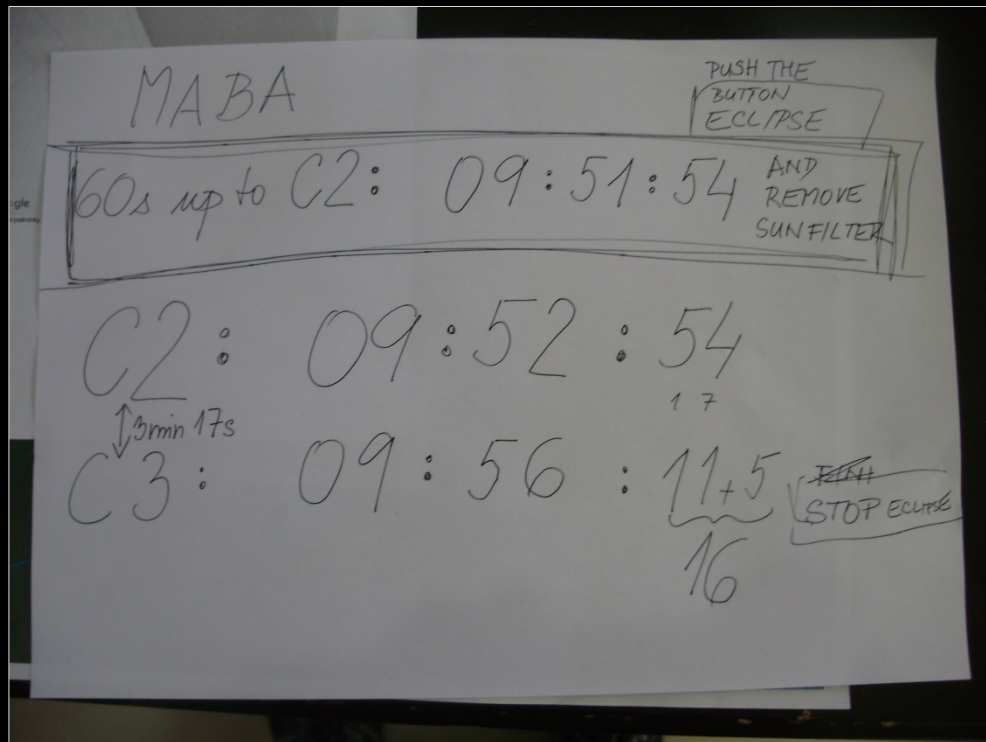 MABA
PUSH THE
BUTTON
ECLIPSE
60s up to C2: 09:51:54
AND
REMOVE
SUNFILTER
C2: 09:52:54
17
3min 17s
C3: 09:56:11+5
STOP ECLIPSE
16